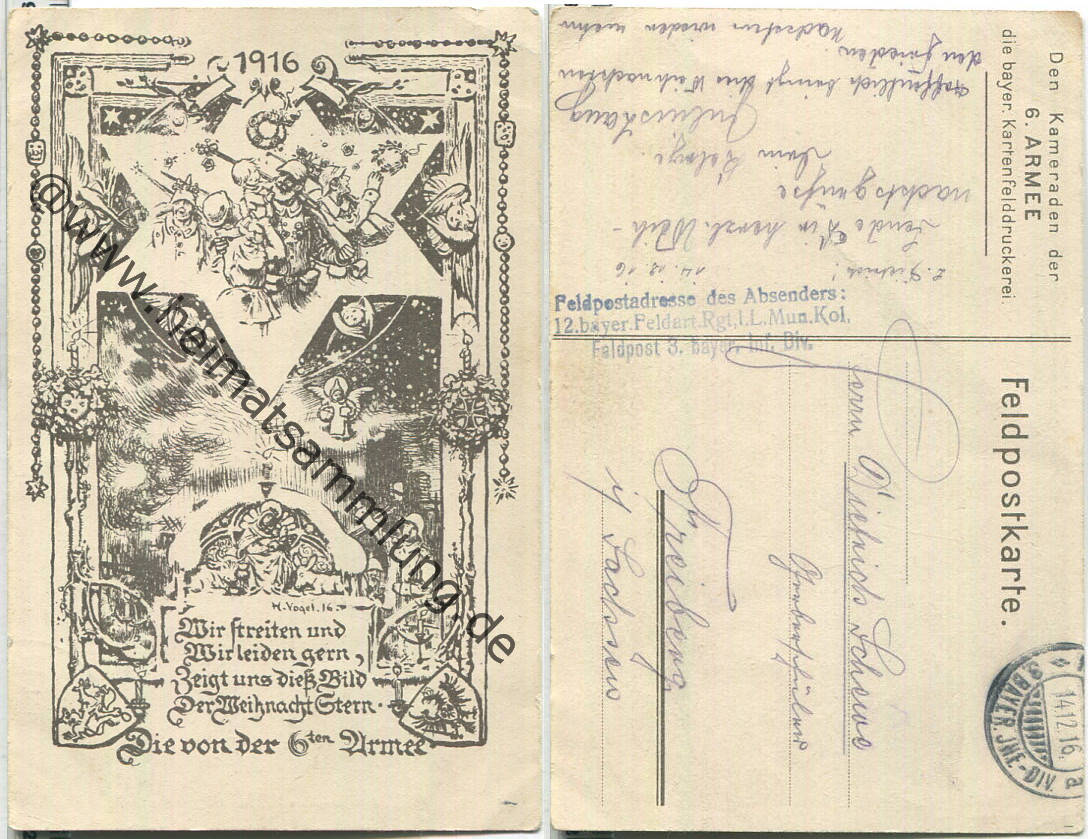 1916
H. Vogel. 16.
Wir streiten und
Wir leiden gern,
Zeigt uns dieß Bild
Der Weihnacht Stern.
Die von der 6ten Armee
@www.heimatsammlung.de
Den Kameraden der
6. ARMEE
die bayer. Kartenfelddruckerei.
Feldpostkarte.
14.12.16.
a
3. BAYER. INF.-DIV.
Feldpostadresse des Absenders:
12. bayer. Feldart. Rgt, I. L. Mun. Kol.
Feldpost 3. bayer. Inf. Div.
14.12.16
Sende Dir herzl. Weih-
nachtsgrüße
Dein
Hoffentlich bringt uns Weihnachten
den Frieden.
Herrn Dietrich
Freiberg
i/ Sachsen